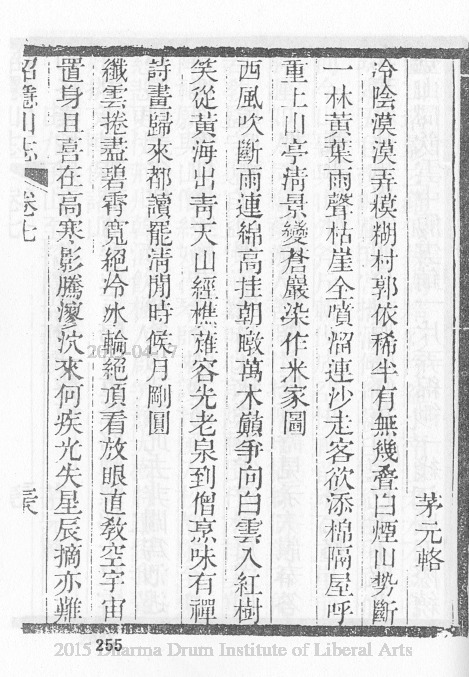 茅元輅
冷陰漠漠弄模糊村郭依稀半有無幾疊白煙山勢斷
一林黃葉雨聲枯崖全噴溜連沙走客欲添棉隔屋呼
重上山亭清景變蒼巖染作米家圖
西風吹斷雨連綿高挂朝暾萬木巔爭向白雲入紅樹
笑從黃海出靑天山經樵雜容先老泉到僧烹味有禪
詩畫歸來都讀罷淸閒時候月剛圓
纖雲捲盡碧霄寬絕冷冰輪絕頂看放眼直教空宇宙
置身且喜在高寒影騰寥泬來何疾光失星辰摘亦難
招隱山志 卷七
2015-04-17
255
2015 Dharma Drum Institute of Liberal Arts